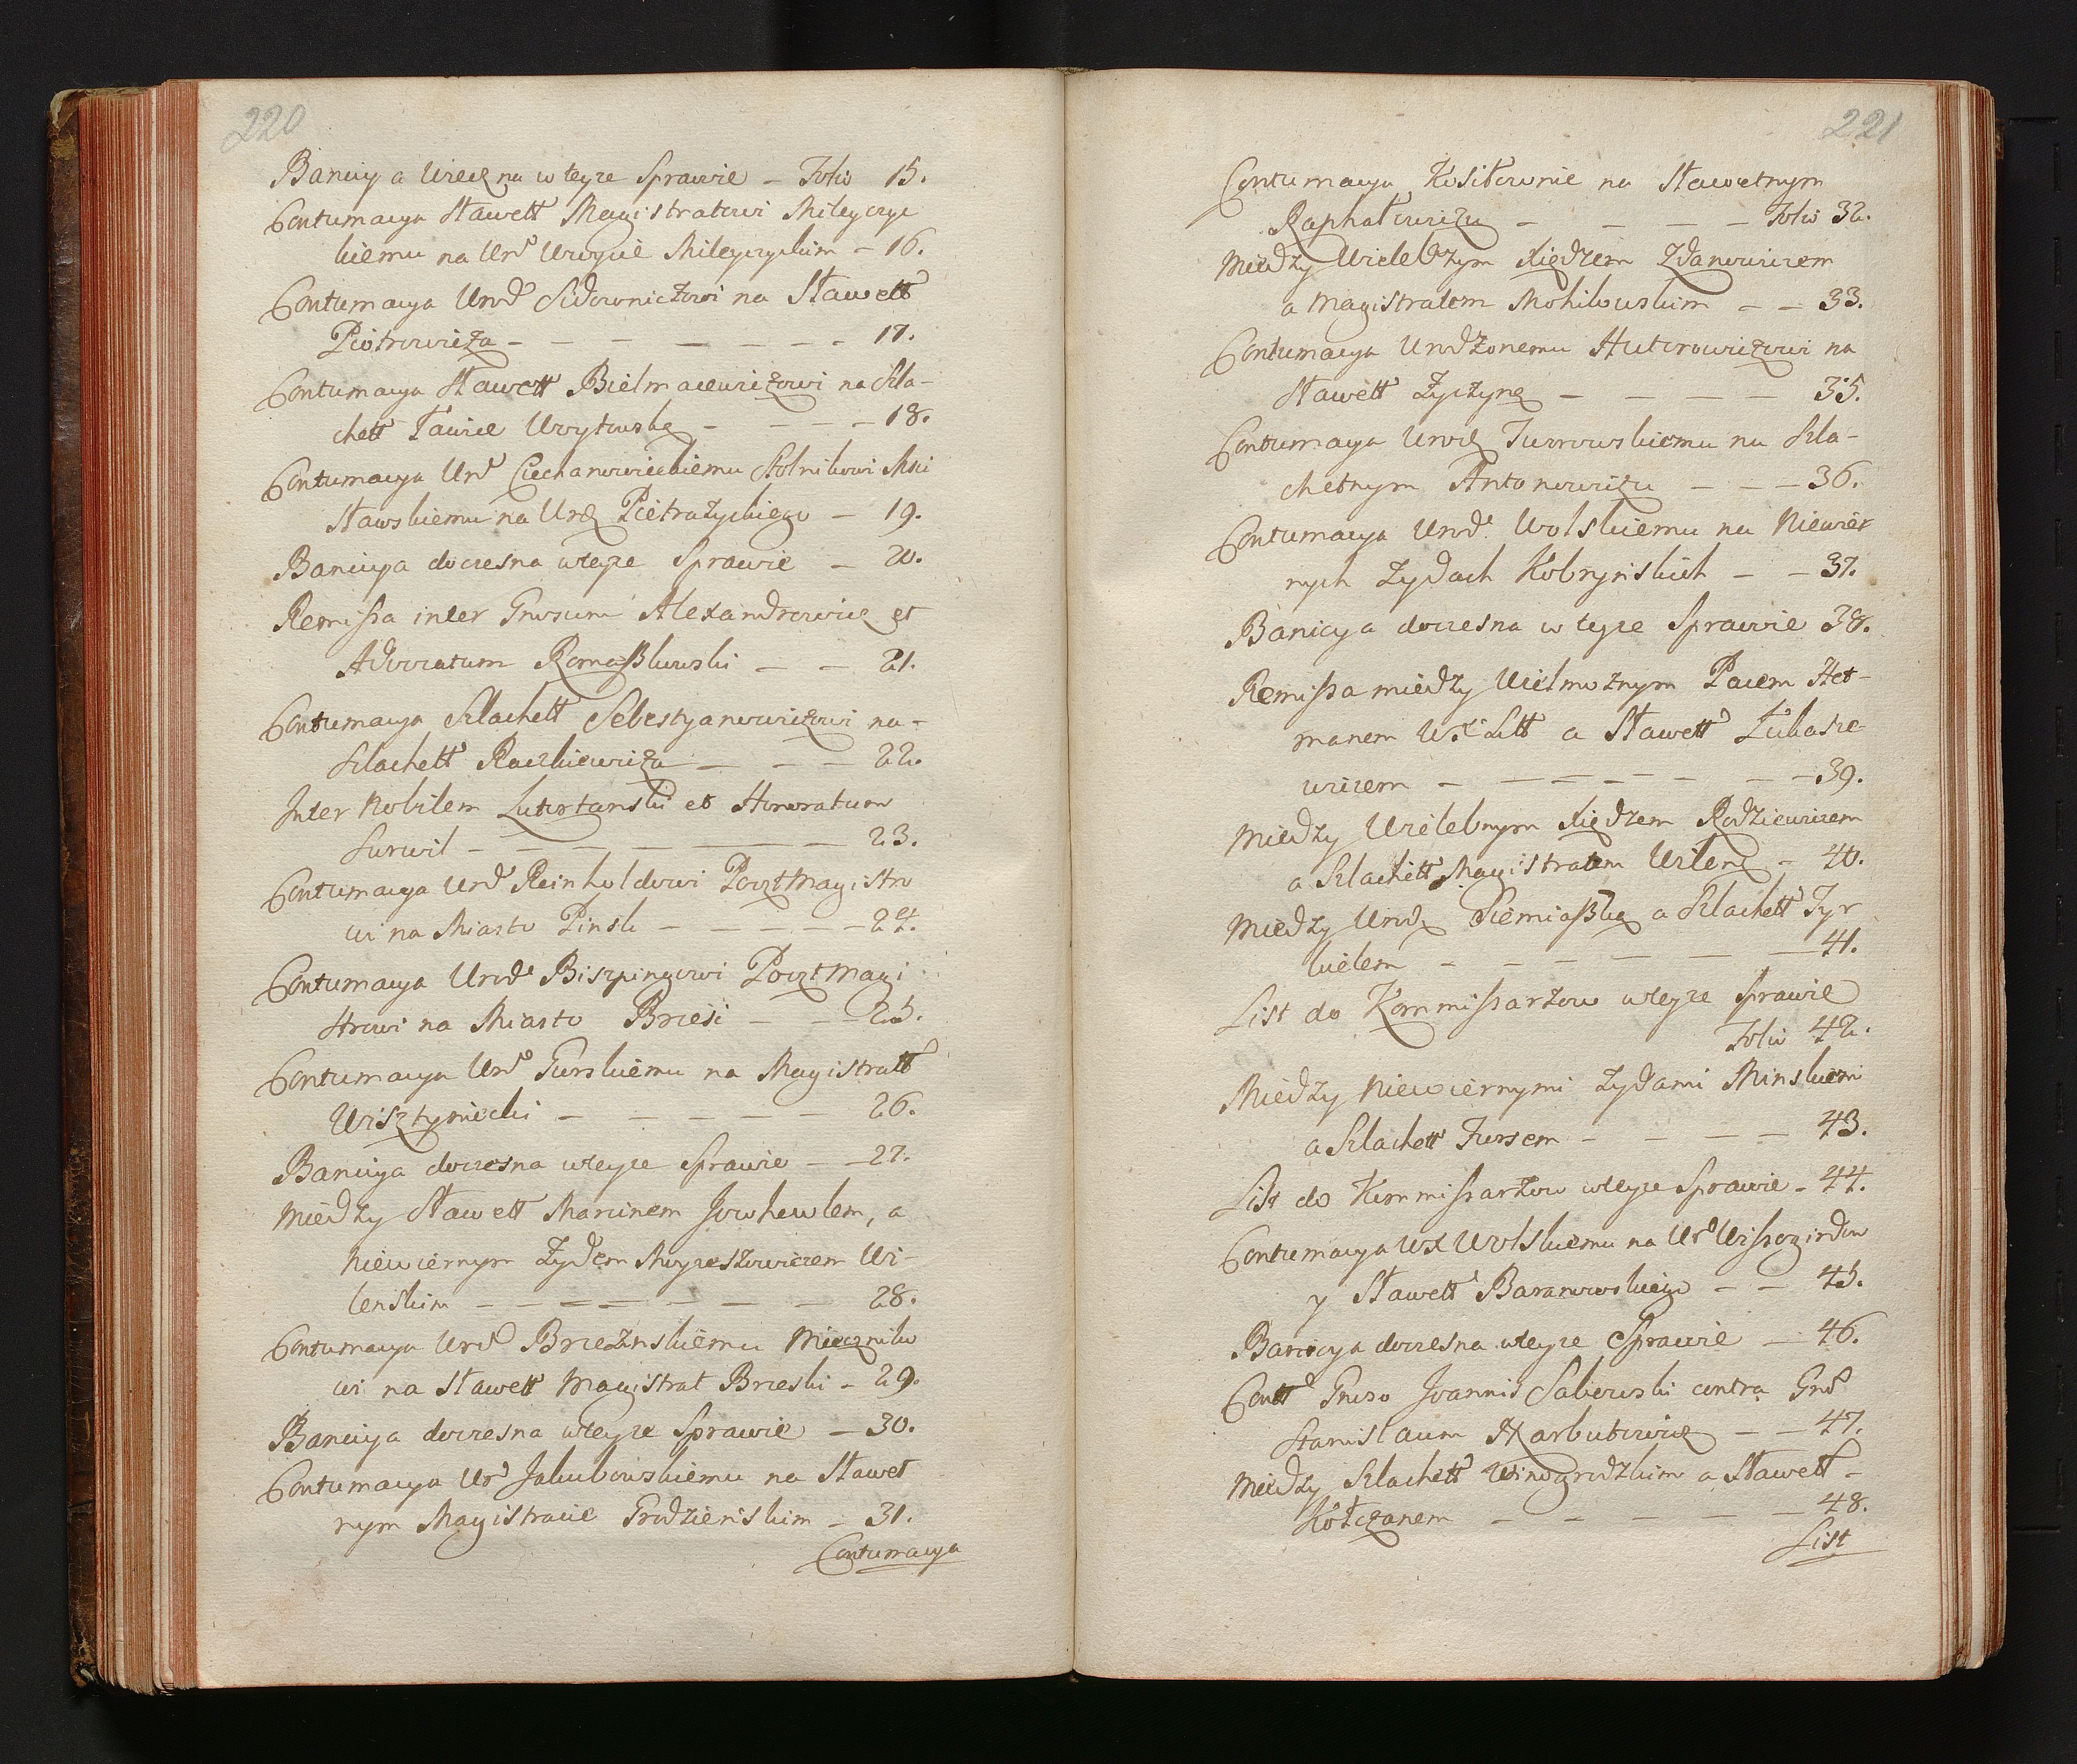 220
Banicya wiecz na w teyze Sprawie – Folio 15.
Contumacya Sławett Magistratowi Mileyczyc
kiemu na Urd Uroycie Mileyczyckim – 16.
Contumacya Urod Sidorowniczowi na Sławett
Piotrowicza – – – – – – – 17.
Contumacya Sławett Bielmacewiczowi na Szla-
chett Ławice Woytowską – – – – 18.
Contumacya Urd Ciechanowieckiemu Stolnikowi Msci
sławskiemu na Urdz Pietrazyckiego – 19.
Banicya doczesna wteyze Sprawie – 20.
Remissa inter Gnosum Alexandrowicz et
Advocatum Romaszkowski – – 21.
Contumacya Szlachett Sebestyanowiczowi na-
Szlachett Raczkiewicza – – – 22.
Inter Nobilem Lutostanski et Honoratum
Surwil – – – – – – – 23.
Contumacya Urd Reinholdowi Poczt Magistro
wi na Miasto Pinsk – – – – – 24.
Contumacya Urod Biszpingowi Poczt Magi
strowi na Miasto Brzesi – – – 25.
Contumacya Urd Gurskiemu na Magistratt
Wisztyniecki – – – – – – 26.
Banicya doczesna wteyze Sprawie – – 27.
Między Sławett Marcinem Jowhewlem, a
Niewiernym Zydem Moyzeszowiczem Wi-
lenskim – – – – – – – 28.
Contumacya Urd Brzezinskiemu Miecznilo
wi na Sławett Magistrat Brzeski – 29.
Banicya doczesna wteyze Sprawie – 30.
Contumacya Ur Jakubowskiemu na Sławet
nym Magistracie Grodzienskim – 31.
Contumacya
221
Contumacya Kosiłownie na Sławetnym
Raphałowiczu – – – – Folio 32.
Między Wielebzym Xiędzem Zdanowiczem
a Magistratem Mohilowskim – – 33.
Contumacya Urodzonemu Hutorowiczowi na
Sławett Zyczynę – – – – – 35.
Contumacya Urodz Jurrowskiemu na Szla-
chetnym Antonowiczu – – – 36.
Contumacya Urod. Wolskiemu na Niewier
nych Zydach Kobrynskich – – 37.
Banicya doczesna w teyze Sprawie 38.
Remissa między Wielmoznym Pacem Het-
manem W. X Litt a Sławett Łukasze-
wiczem – – – – – – – – 39.
Między Wielebnym Xiędzem Rodziewiczem
a Szlachett Magistratem Wilenz – 40.
Między Urodz Siemiaszką a Szlachett Tyr
kielem – – – – – – – 41.
List do Kommissarzow wteyze Sprawie
Folio 42.
Między Niewiernymi Zydami Minskiemi
a Szlachett Fursem – – – – 43.
List do Kommissarzow wteyze Sprawie – 44.
Contumacya WX Wolskiemu na Ur Wissogirdow
y Sławett Baranowskiego – – 45.
Banicya doczesna wteyze Sprawie – 46.
Contt Gnoso Joannis Sabowski contra Gnd
Stanislaum Narbutowicz – – 47.
Między Szlachett Winogrodzkim a Sławett –
Kołczanem – – – – – – 48.
List